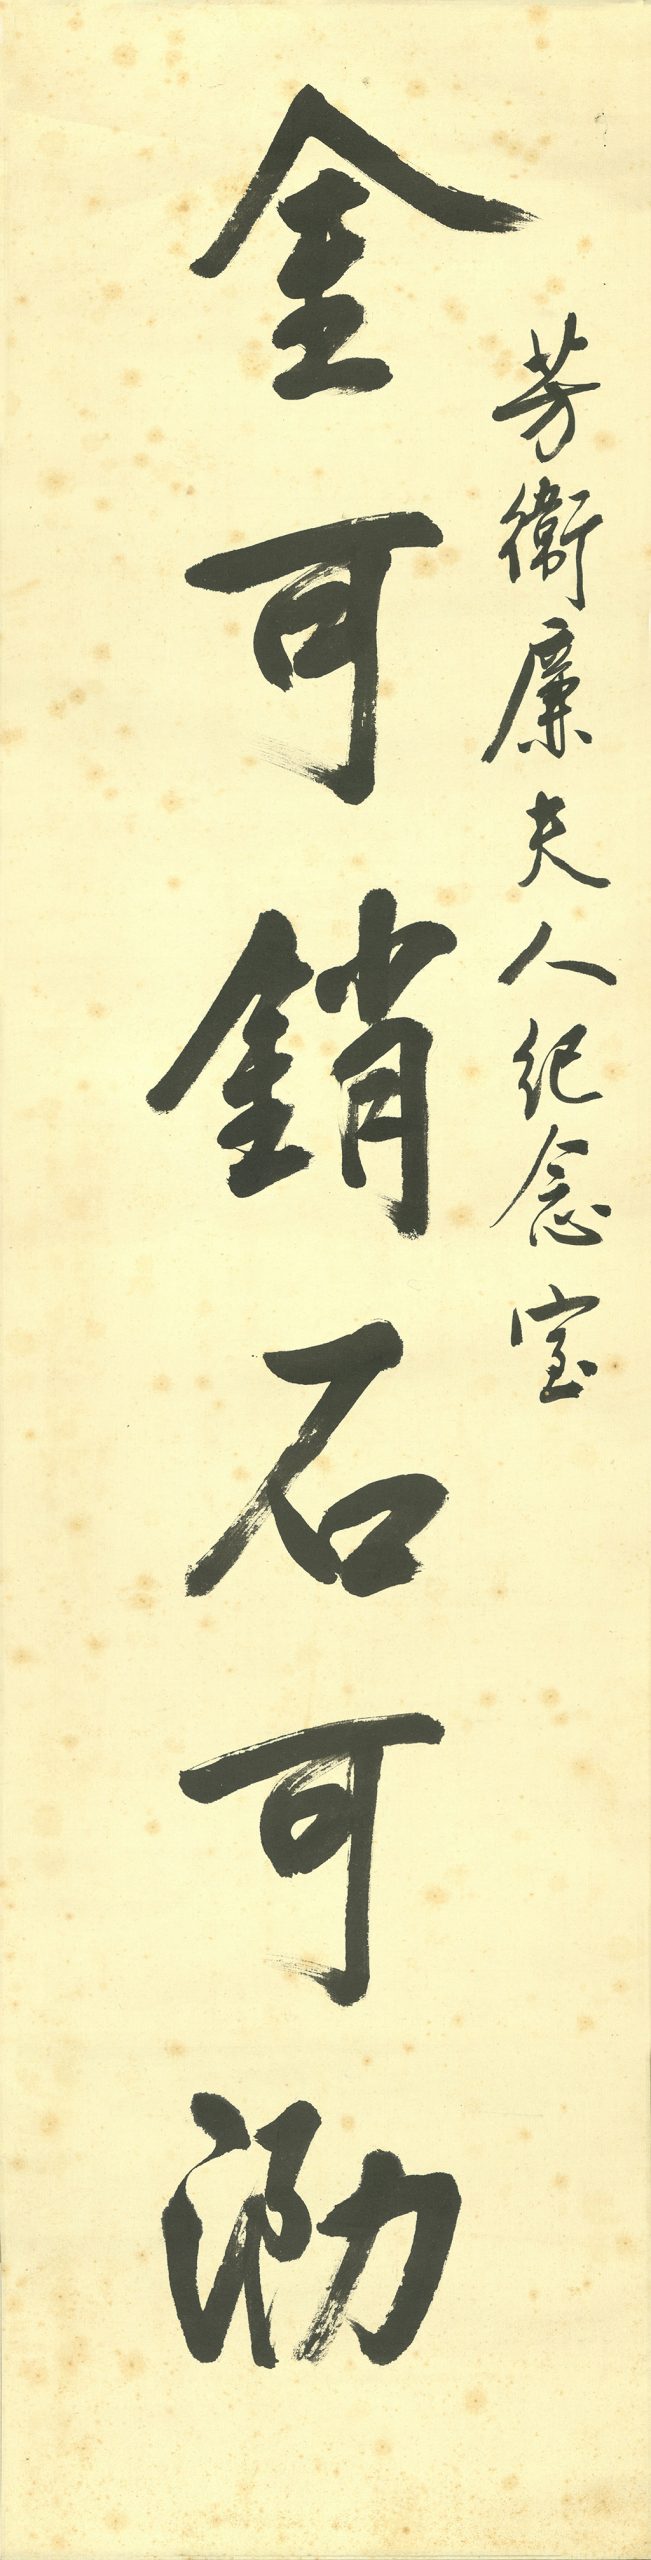 芳衞廉夫人纪念室
金可銷石可泐